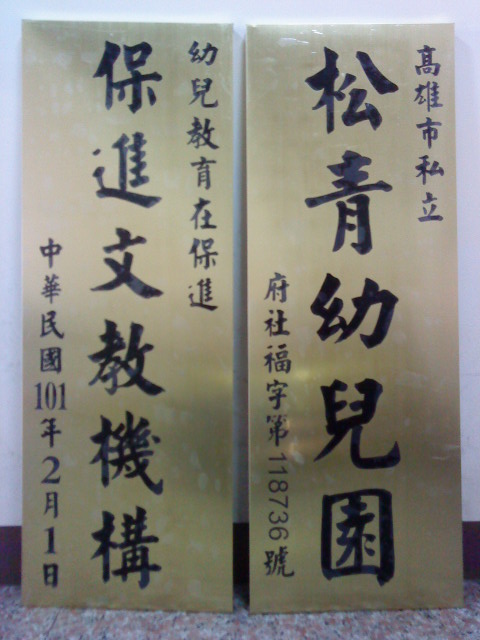 高雄市私立
松青幼兒園
府社福字第118736號
幼兒教育在保進
保進文教機構
中華民國101年2月1日